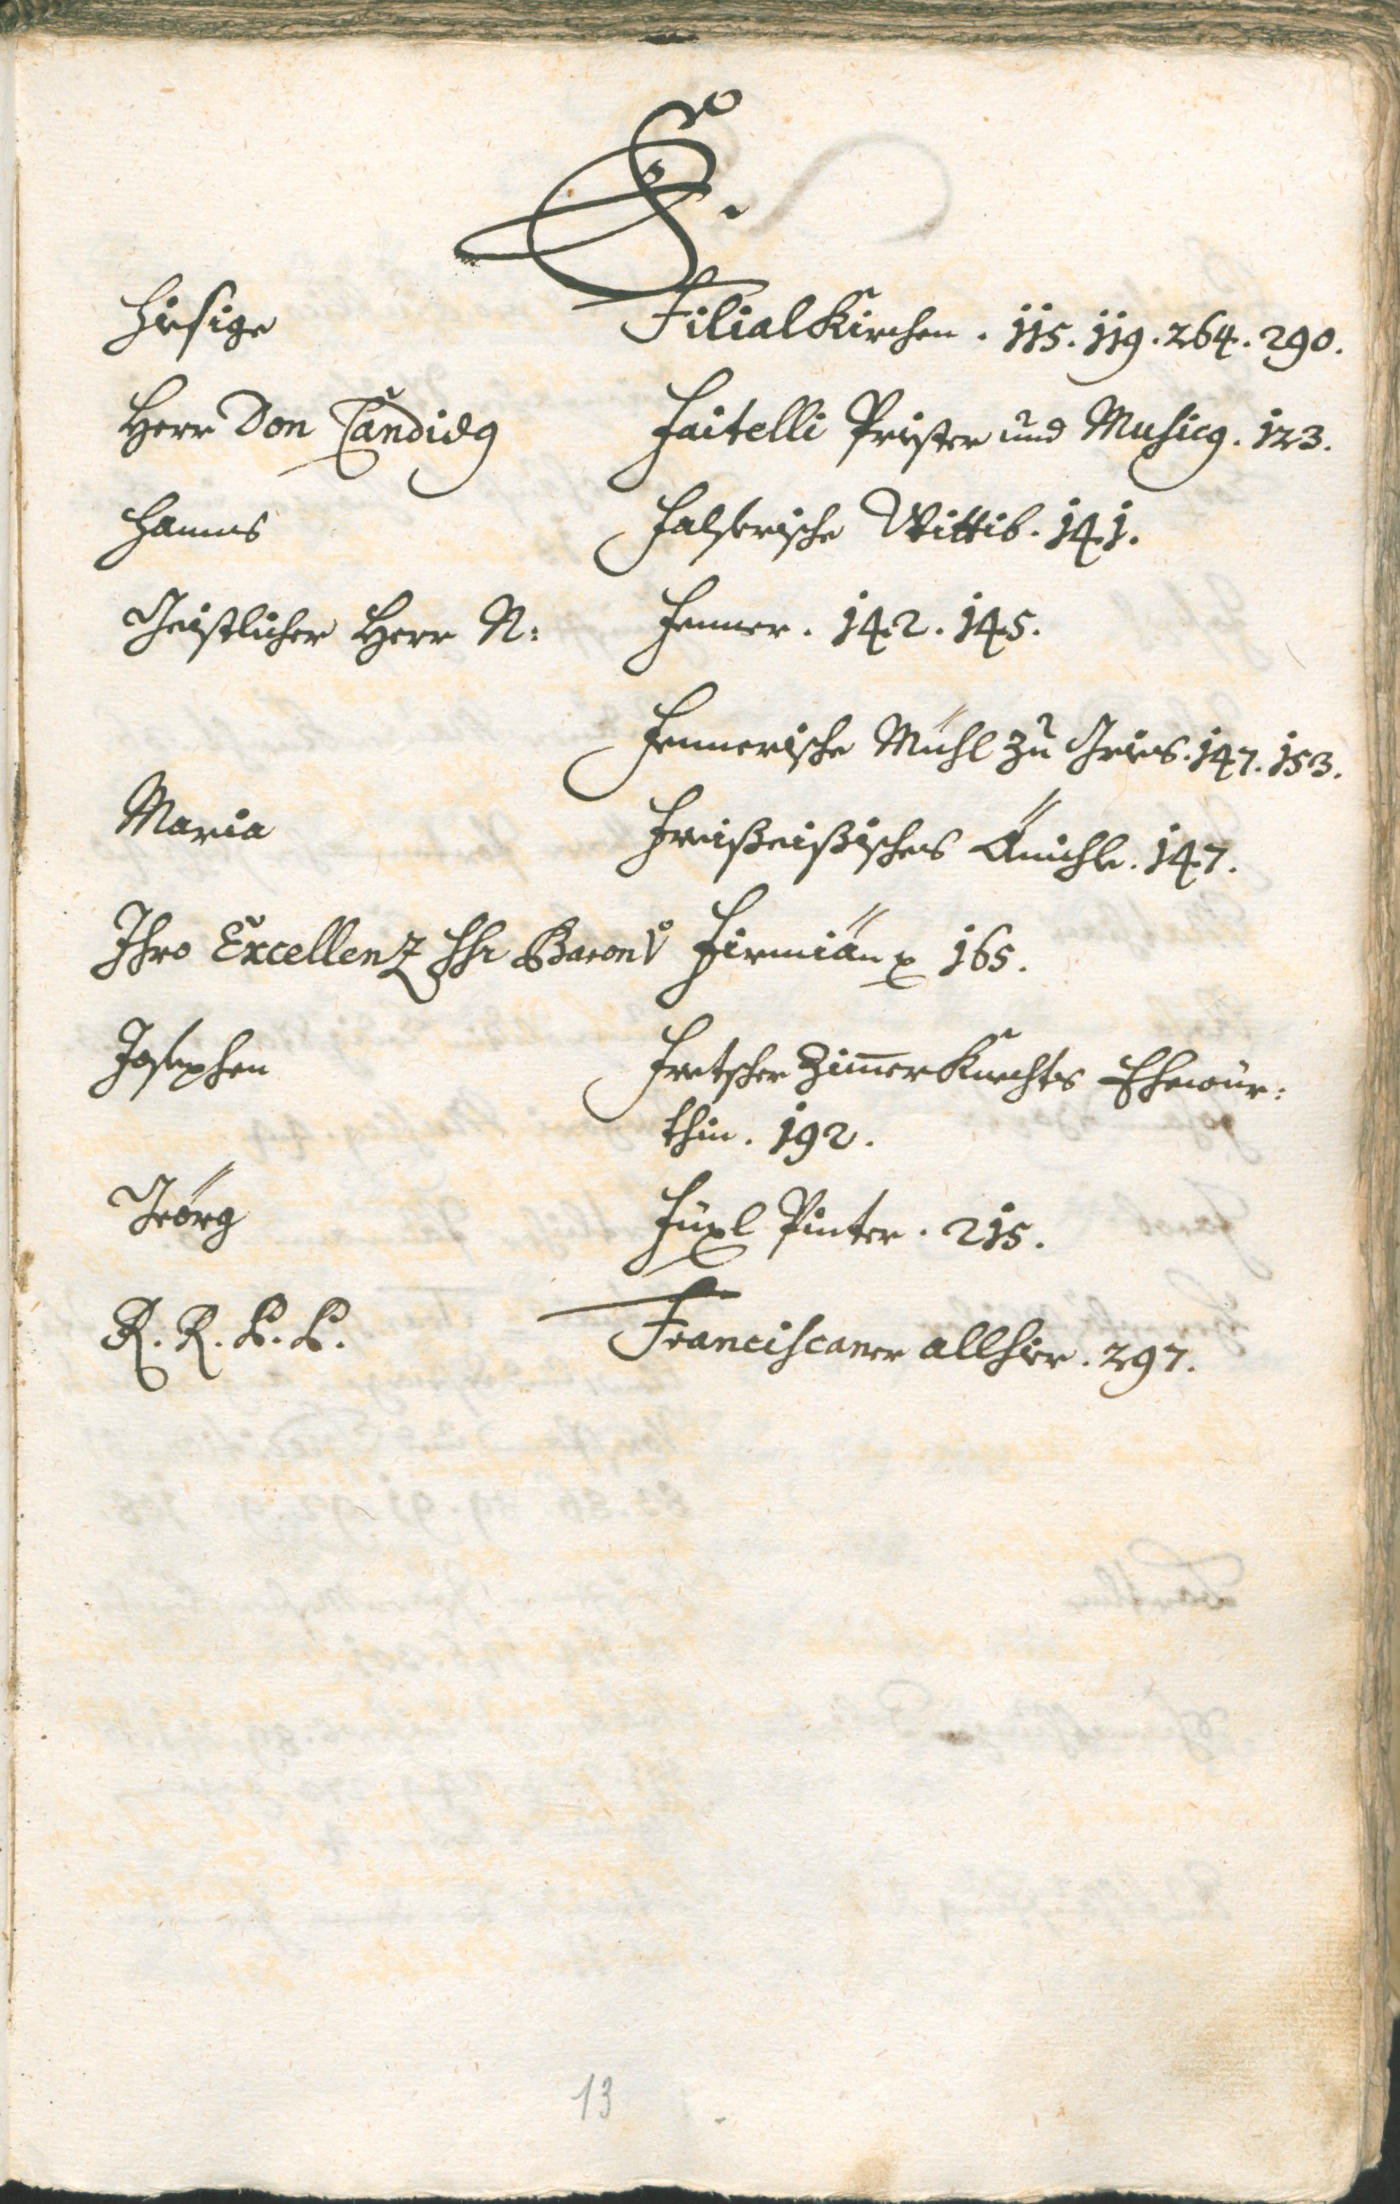 F.
Hiesige Filial Kirchen . 115. 119. 264. 290.
Herr Don Candidg Faitelli Priester und Musicg. 123.
Hanns Falserische Wittib. 141.
Geistlicher Herr N: Fenner. 142. 145.
Fennerische Mühl zu Gries. 147. 153.
Maria Freißeißisches 147.
Ihro Excellenz Hr Baron v Firmian 165.
Josephen Fretscher Zimmer Knechts Ehewür:
thin. 192.
Geörg Füxl Pinter. 215.
R. R. P. P. Franciscaner allhier. 297.
13